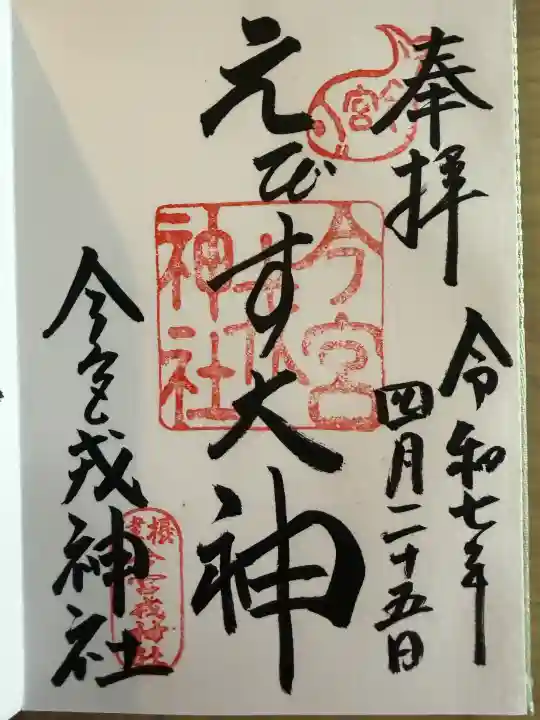 奉拝
令和七年
四月二十五日
えびす大神
今宮戎神社
今宮
神社
今宮戎神社